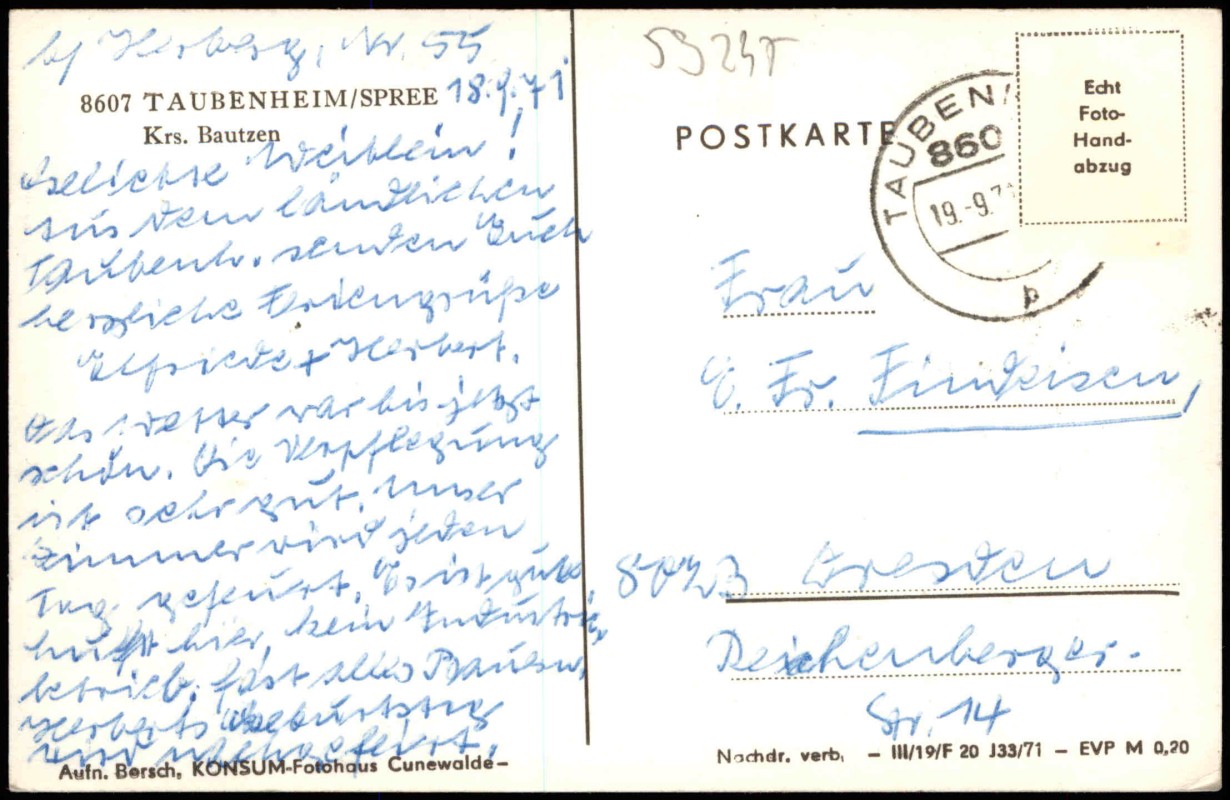 b/ Herberg, Nr. 55
8607 TAUBENHEIM/SPREE 18.9.71
Krs. Bautzen
Geliebte Weiblein!
Aus dem ländlichen
Taubenh. senden Euch
herzliche Feriengrüße
Elfriede + Herbert.
Das Wetter war bis jetzt
schön. Die Verpflegung
ist sehr gut. Unser
Zimmer wird jeden
Tag gefeurt. Es ist gute
Luft hier, kein Industrie
betrieb, fast alles Bauern.
Herberts Geburtstag
wird nachgefeiert.
Aufn. Bersch, KONSUM-Fotohaus Cunewalde-
POSTKARTE
TAUBENH
860
19.-9.71
b
Echt
Foto-
Hand-
abzug
Frau
E. Fr. Findeisen,
8023 Dresden
Reichenberger-
Str. 14
Nachdr. verb. – III/19/F 20 J33/71 – EVP M 0,20